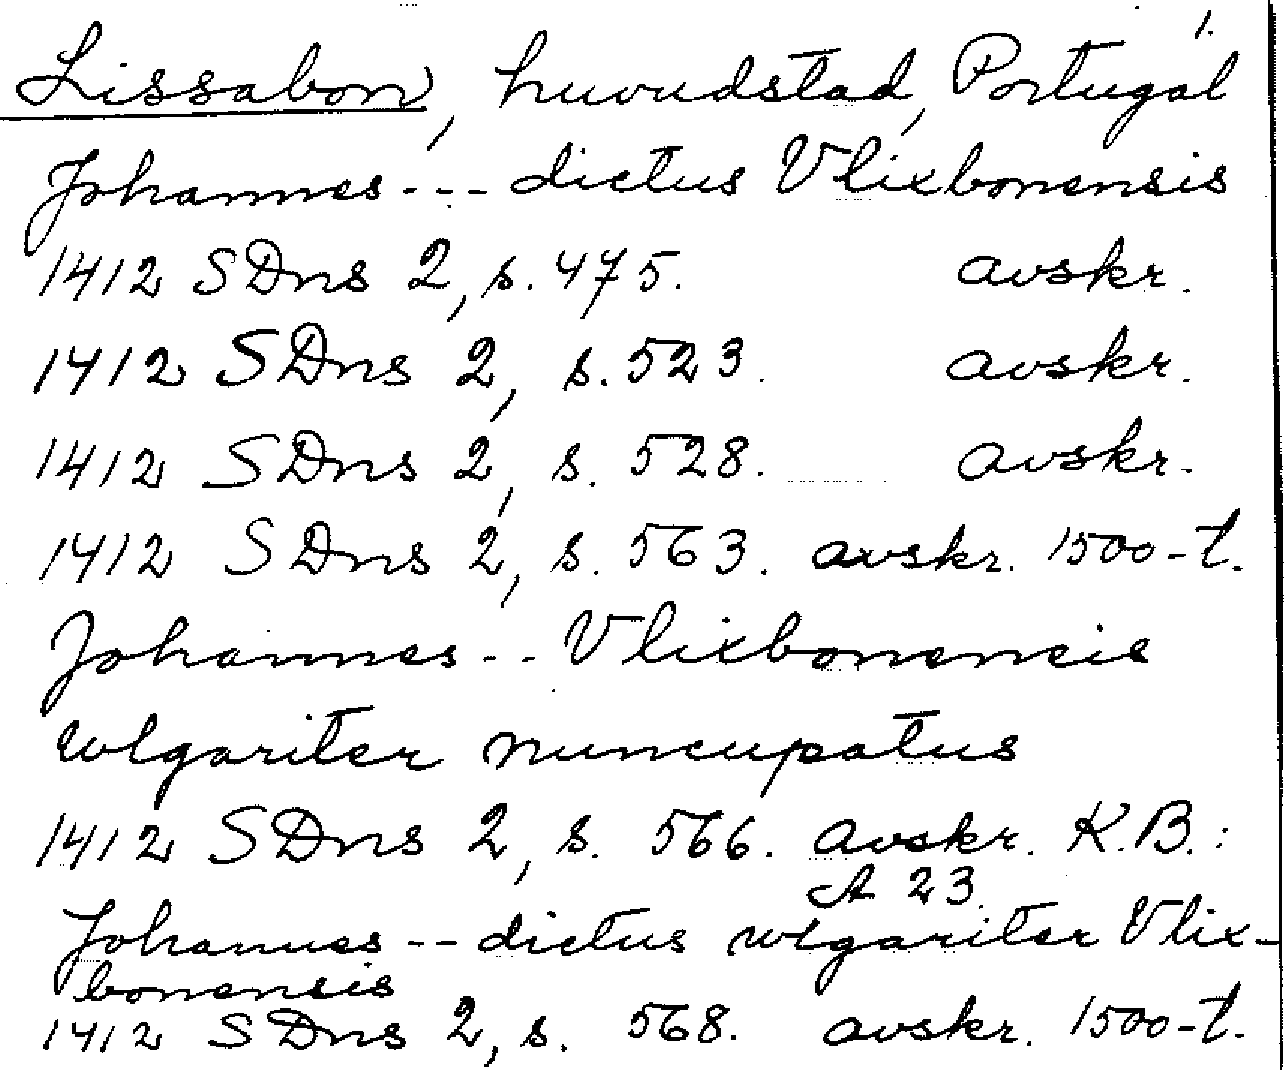 1.
Lissabon, huvudstad, Portugal
Johannes --- dictus Vlixbonensis
1412 SDns 2, s. 475. avskr.
1412 SDns 2, s. 523. avskr.
1412 SDns 2, s. 528. avskr.
1412 SDns 2, s. 563. avskr. 1500-t.
Johannes -- Vlixbonensis
wlgariter nuncupatus
1412 SDns 2, s. 566. avskr. K.B.:
A 23.
Johannes -- dictus wlgariter Vlix-
bonensis
1412 SDns 2, s. 568. avskr. 1500-t.